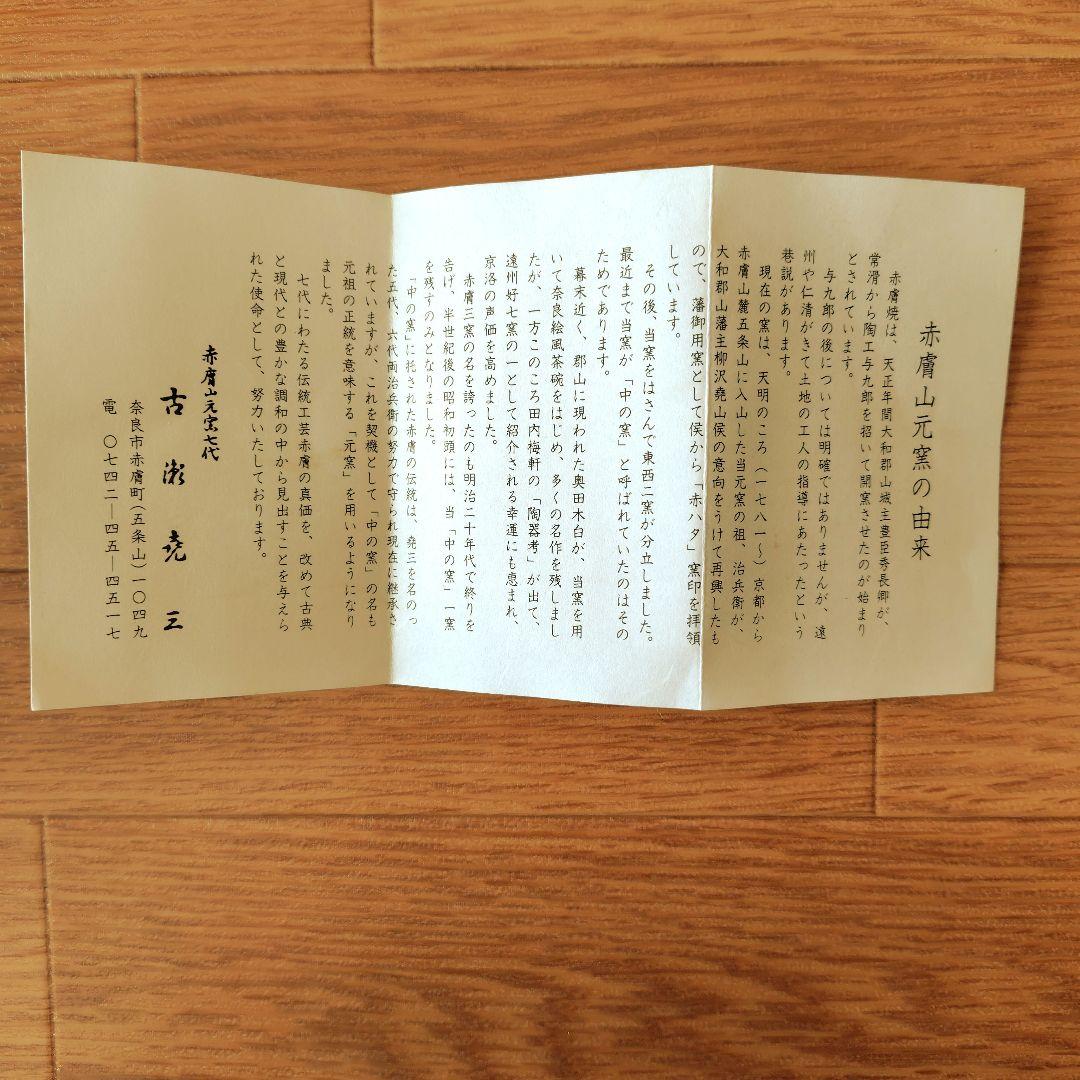 赤膚山元窯の由来
赤膚焼は、天正年間大和郡山城主豊臣秀長卿が、
常滑から陶工与九郎を招いて開窯させたのが始まり
とされています。
与九郎の後については明確ではありませんが、遠
州や仁清がきて土地の工人の指導にあたったという
巷説があります。
現在の窯は、天明のころ（一七八一〜）京都から
赤膚山麓五条山に入山した当元窯の祖、治兵衛が、
大和郡山藩主柳沢堯山侯の意向をうけて再興したも
ので、藩御用窯として侯から「赤ハタ」窯印を拝領
しています。
その後、当窯をはさんで東西二窯が分立しました。
最近まで当窯が「中の窯」と呼ばれていたのはその
ためであります。
幕末近く、郡山に現われた奥田木白が、当窯を用
いて奈良絵風茶碗をはじめ、多くの名作を残しまし
たが、一方このころ田内梅軒の「陶器考」が出て、
遠州好七窯の一として紹介される幸運にも恵まれ、
京洛の声価を高めました。
赤膚三窯の名を誇ったのも明治二十年代で終りを
告げ、半世紀後の昭和初頭には、当「中の窯」一窯
を残すのみとなりました。
「中の窯」に托された赤膚の伝統は、堯三を名のっ
た五代、六代両治兵衛の努力で守られ現在に継承さ
れていますが、これを契機として「中の窯」の名も
元祖の正統を意味する「元窯」を用いるようになり
ました。
七代にわたる伝統工芸赤膚の真価を、改めて古典
と現代との豊かな調和の中から見出すことを与えら
れた使命として、努力いたしております。
赤膚山元窯七代
古瀬堯三
奈良市赤膚町(五条山)一〇四九
電　〇七四二―四五―四五一七